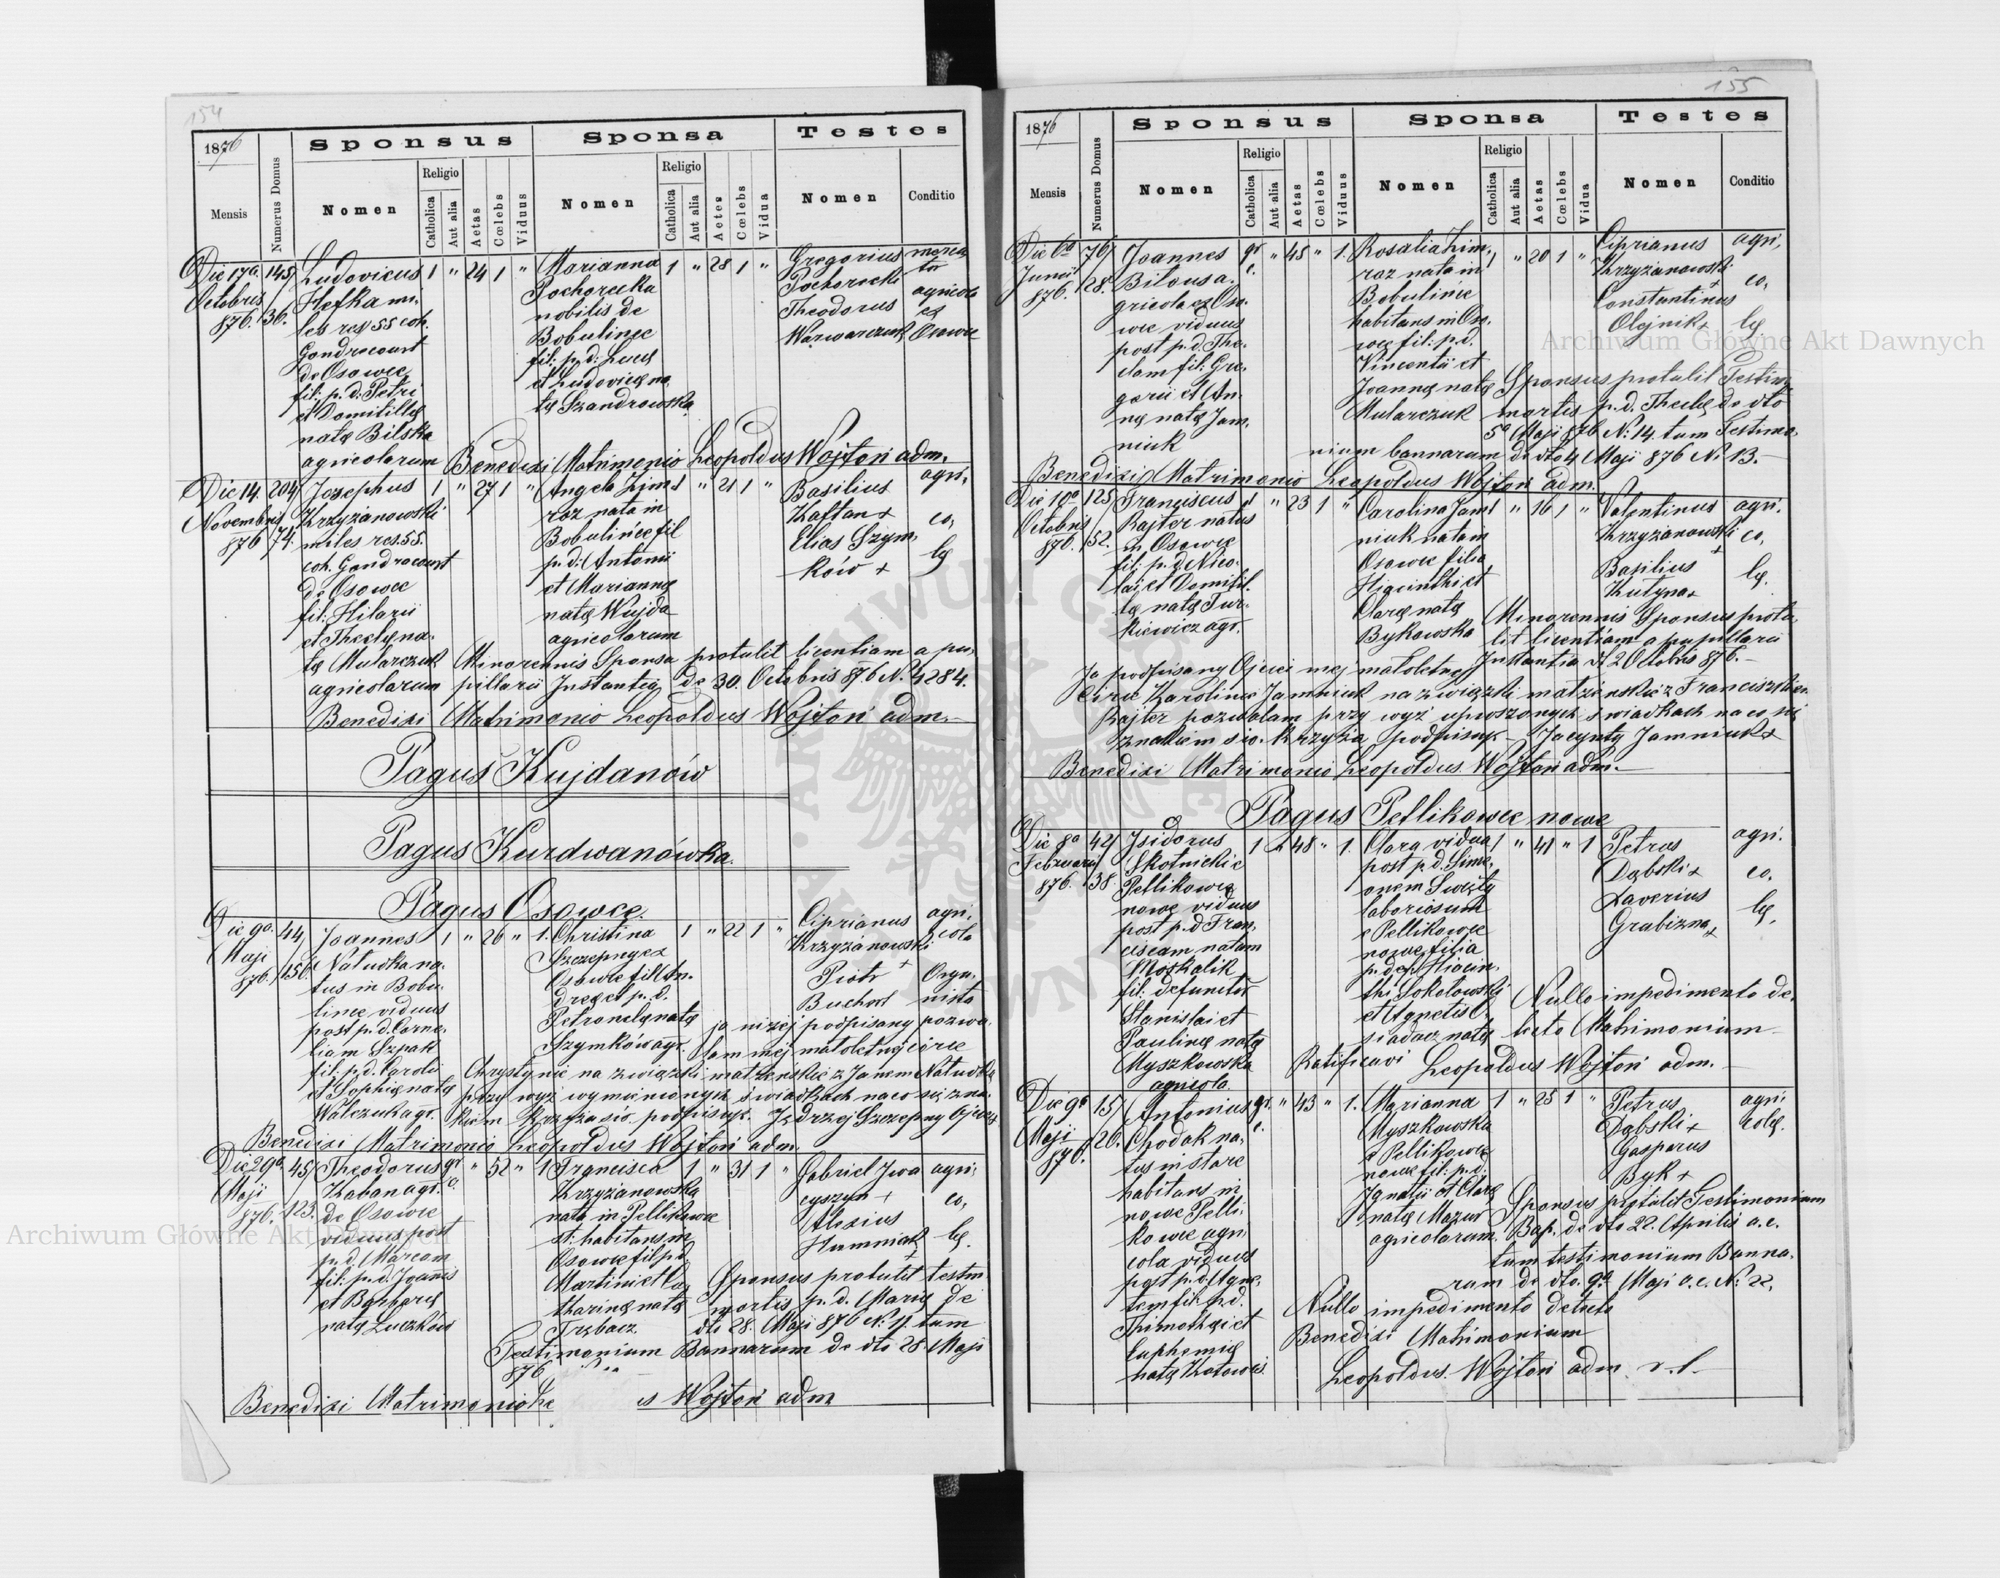 154
1876
Sponsus
Sponsa
Testes
Mensis
Numerus Domus
Nomen
Religio
Catholica
Aut alia
Aetas
Cœlebs
Viduus
Nomen
Religio
Catholica
Aut alia
Aetes
Cœlebs
Vidua
Nomen
Conditio
Die 17a Octobris 876.
145/36.
Ludovicus
Hefka mi-
les reg 55 coh.
Gondrecourt
de Osowce
fil: p. d: Petri
et Domitillę
natę Bilska
agricolarum
1 " 24 1 "
Marianna
Pochorecka
nobilis de
Bobulince
fil: p. d: Lucę
et Ludovicę na-
tę Szandrowska
1 " 28 1 "
Gregorius
Pochorecki
Theodorus
Warwarczuk
agricola
ex
Osowce
Benedixi Matrimonio Leopoldus Wojtoń adm.
Die 14. Novembris 876
204/74.
Josephus
Krzyżanowski
miles res. 55.
coh. Gondrecourt
de Osowce
fil: Hilarii
et Theclę na-
tę Mularczuk
agricolarum
1 " 27 1 "
Angela Lim-
raz nata in
Bobulińce fil
p. d: Antonii
et Mariannę
natę Wujda
agricolarum
1 " 21 1 "
Basilius
Kaftan +
Elias Szym-
ków +
agri-
co-
lę
Minorennis Sponsa protulit licentiam a pu-
pillarii Instantią de 30. Octobris 876 N. 4284.
Benedixi Matrimonio Leopoldus Wojtoń adm.
Pagus Kujdanów
Pagus Kurdwanówka.
Pagus Osowce.
Die 9a. Maji 876.
44/156
Joannes
Natuśka na-
tus in Bobu-
lince viduus
post p. d. Corne-
liam Szpak
fil: p. d. Caroli
et Sophię natę
Walczuk agr.
1 " 26 " 1.
Christina
Szczepny ex
Osowce fil An-
dreę et p. d.
Petronelę natę
Szymków agr.
1 " 22 1 "
Ciprianus
Krzyżanowski
+
Piotr
Buchowt
agri-
cola
Orga-
nista
ja niżej podpisany pozwa-
lam mej małoletnej córce
Chrystynie na związki małżenskie z Janem Natuśką
przy wyż wymienionych świadkach na co się zna-
kiem Krzyża śío. podpisuję. Jędrzej Szczepny Ojciec
Benedixi Matrimonio Leopoldus Wojtoń adm.
Die 29a. Maji 876.
45/123.
Theodorus
Kaban agr.
de Osowce
viduus post
p. d. Mariam
fil: p. d. Joanis
et Barbarę
natę Luczków
gr. c. " 52 " 1
Francisca
Krzyżanowska
nata in Petlikowce
st: habitans in
Osowce fil p. d.
Martini et Ca-
tharinę natę
Trębacz
1 " 31 1 "
Gabriel Jwa
cyszyn +
Alexius
Humniak
+
agri-
co-
lę.
Sponsus protulit testm
mortis p. d. Marię de
dto 28. Maji 876 N. 17. tum
Testimonium Bannarum de dto 28. Maji
876
Benedixi Matrimonio Le
s Wojtoń adm
155
1876
Sponsus
Sponsa
Testes
Mensis
Numerus Domus
Nomen
Religio
Catholica
Aut alia
Aetas
Cœlebs
Viduus
Nomen
Religio
Catholica
Aut alia
Aetas
Cœlebs
Vidua
Nomen
Conditio
Die 6a Junii 876.
76/28.
Joannes
Bilous a-
gricola ex Oso-
wce viduus
post p. d. The-
clam fil: Gre-
gorii et An-
nę natę Jam-
niuk
gr. c. " 45 " 1.
Rosalia Lim-
raz nata in
Bobulińce
habitans in Oso-
wce fil: p. d.
Vincentii et
Joannę natę
Mularczuk
1 " 20 1 "
Ciprianus
Krzyżanowski
+
Constantinus
Olejnik +
agri-
co-
lę
Sponsus protulit Testim
mortis p. d. Theclę de dto
5a Maji 876 N. 14. tum Testimo-
nium bannarum de dto 4 Maji 876 N. 13.
Benedixi Matrimonio Leopoldus Wojtoń adm.
Die 10a Octobris 876.
125/52.
Franciscus
Rajter natus
in Osowce
fil: p. d. Nico-
lai et Domitil-
lę natę Tur-
kiewicz agr.
1 " 23 1 "
Carolina Jam-
niuk nata in
Osowce filia
Hiacinthi et
Clarę natę
Bykowska
1 " 16 1 "
Valentinus
Krzyżanowski
+
Basilius
Kutyna +
agri-
co-
lę.
Minorennis Sponsus protu-
lit licentiam a pupillarii
Instantia dt 2 Octobris 876.
Ja podpisany Ojciec mej małoletnej
córce Karolinie Jamniuk na związki małżeńskie z Franciszkiem
Rajter pozwalam przy wyż uproszonych świadkach na co się
znakiem śío. Krzyża podpisuję Jacynty Jamniuk +
Benedixi Matrimonio Leopoldus Wojtoń adm.
Pagus Petlikowce nowe
Die 8a Februarii 876.
42/38.
Isidorus
Skotnicki e
Petlikowce
nowe viduus
post p. d. Fran-
ciscam natam
Moskalik
fil: defunctor
Stanislai et
Paulinę natę
Myszkowska
agricola.
1 " 48 " 1.
Clara vidua
post p. d. Sime-
onem Swęty
laboriosum
e Petlikowce
nowe filia
p. def. Hiacin-
thi Sokołowski
et Agnetis
siadacz natę
1 " 41 " 1
Petrus
Dąbski +
Xaverius
Grabizna +
agri-
co-
lę.
Nullo impedimento de-
tecto Matrimonium
Ratificavi Leopoldus Wojtoń adm.
Die 9a Maji 876.
15/26.
Antonius
Chodak na-
tus in stare
habitans in
nowe Petli-
kowce agri
cola viduus
post p. d. Agne-
tem fil: p. d.
Thimothęi et
Euphemię
natę Kotowis
gr. c. " 43 " 1.
Marianna
Myszkowska
e Petlikowce
nowe fil: p. d:
Ignatii et Clarę
natę Mazur
agricolarum.
1 " 25 1 "
Petrus
Dąbski +
Gasparus
Byk +
agri
colę.
Sponsus protulit Testimonium
Bap. de dto 22. Aprilis a. c.
tum testimonium Banna-
rum de dto. 9a Maji a. c. N. 22.
Nullo impedimento detecto
Benedixi Matrimonium
Leopoldus Wojtoń adm. r. l.
Archiwum Główne Akt Dawnych
Archiwum Główne Akt Dawnych